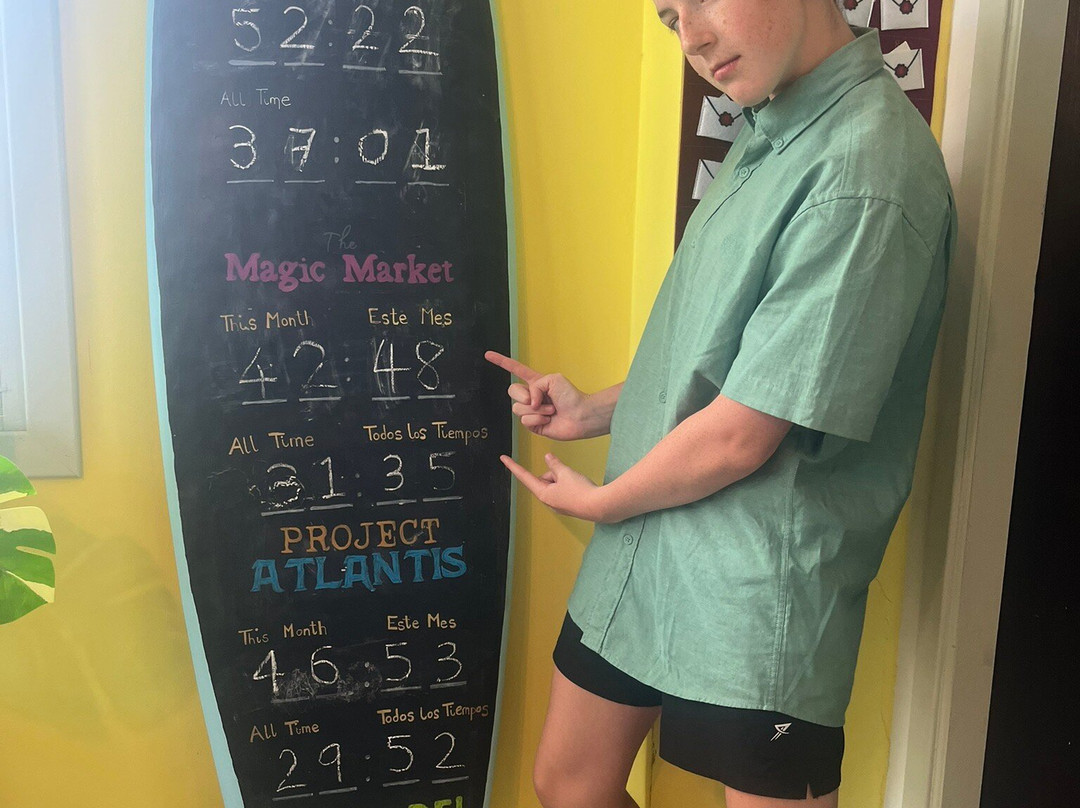 52:22
All Time
37:01
The
Magic Market
This Month Este Mes
42:48
All Time Todos los Tiempos
31:35
PROJECT
ATLANTIS
This Month Este Mes
46:53
All Time Todos los Tiempos
29:52